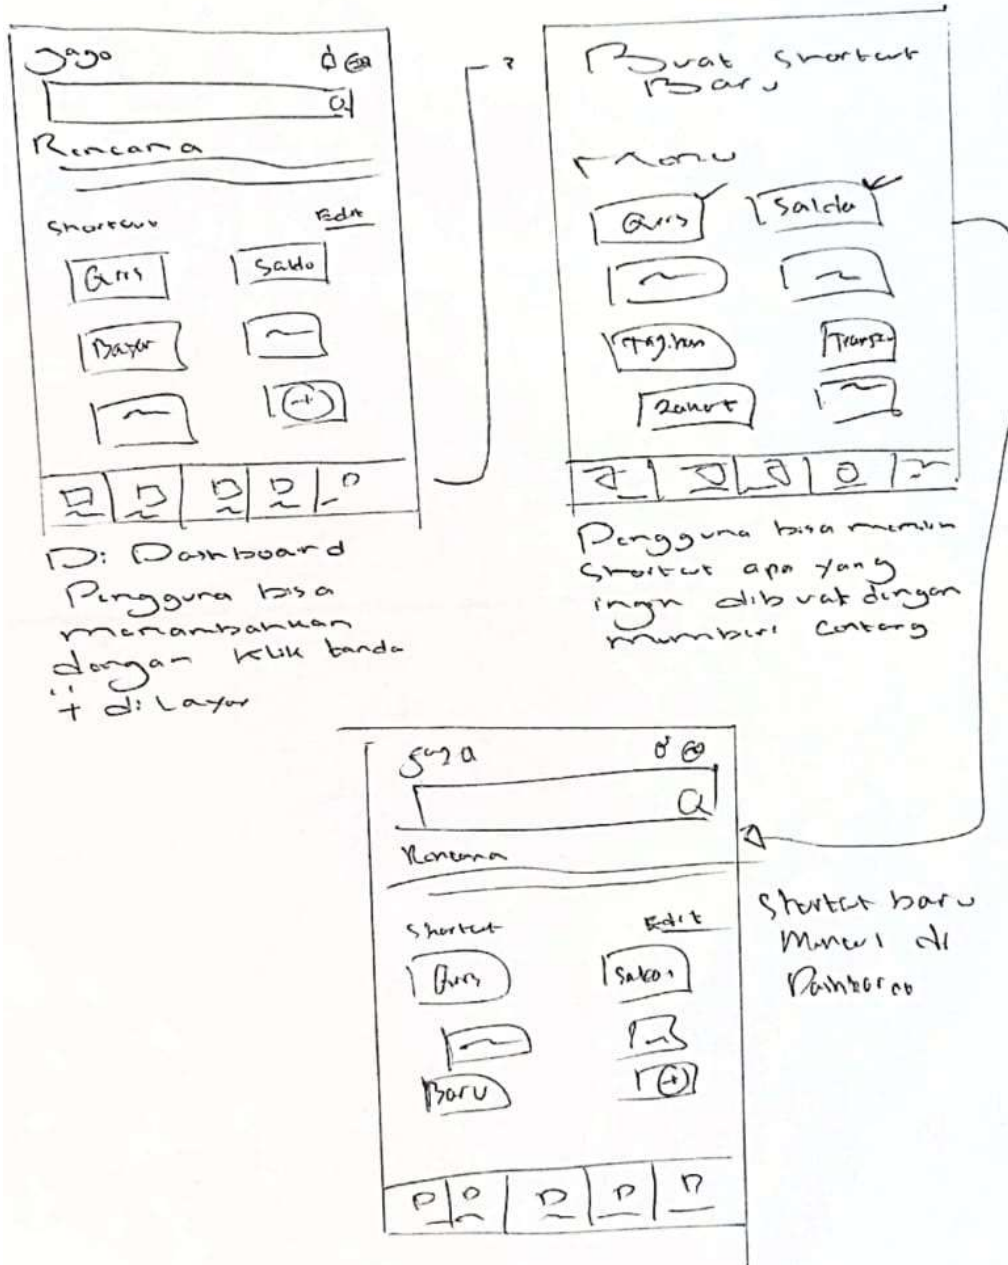 Jago
Rencana
Shortcut Edit
Qris Saldo
Bayar
+
Di Dashboard
Pengguna bisa
menambahkan
dengan klik tanda
+ di layar
?
Buat shortcut
Baru
Menu
Qris Saldo
Tagihan Transfer
Zakat
Pengguna bisa memilih
shortcut apa yang
ingin dibuat dengan
memberi centang
Jago
Rencana
Shortcut Edit
Qris
Baru +
Shortcut baru
muncul di